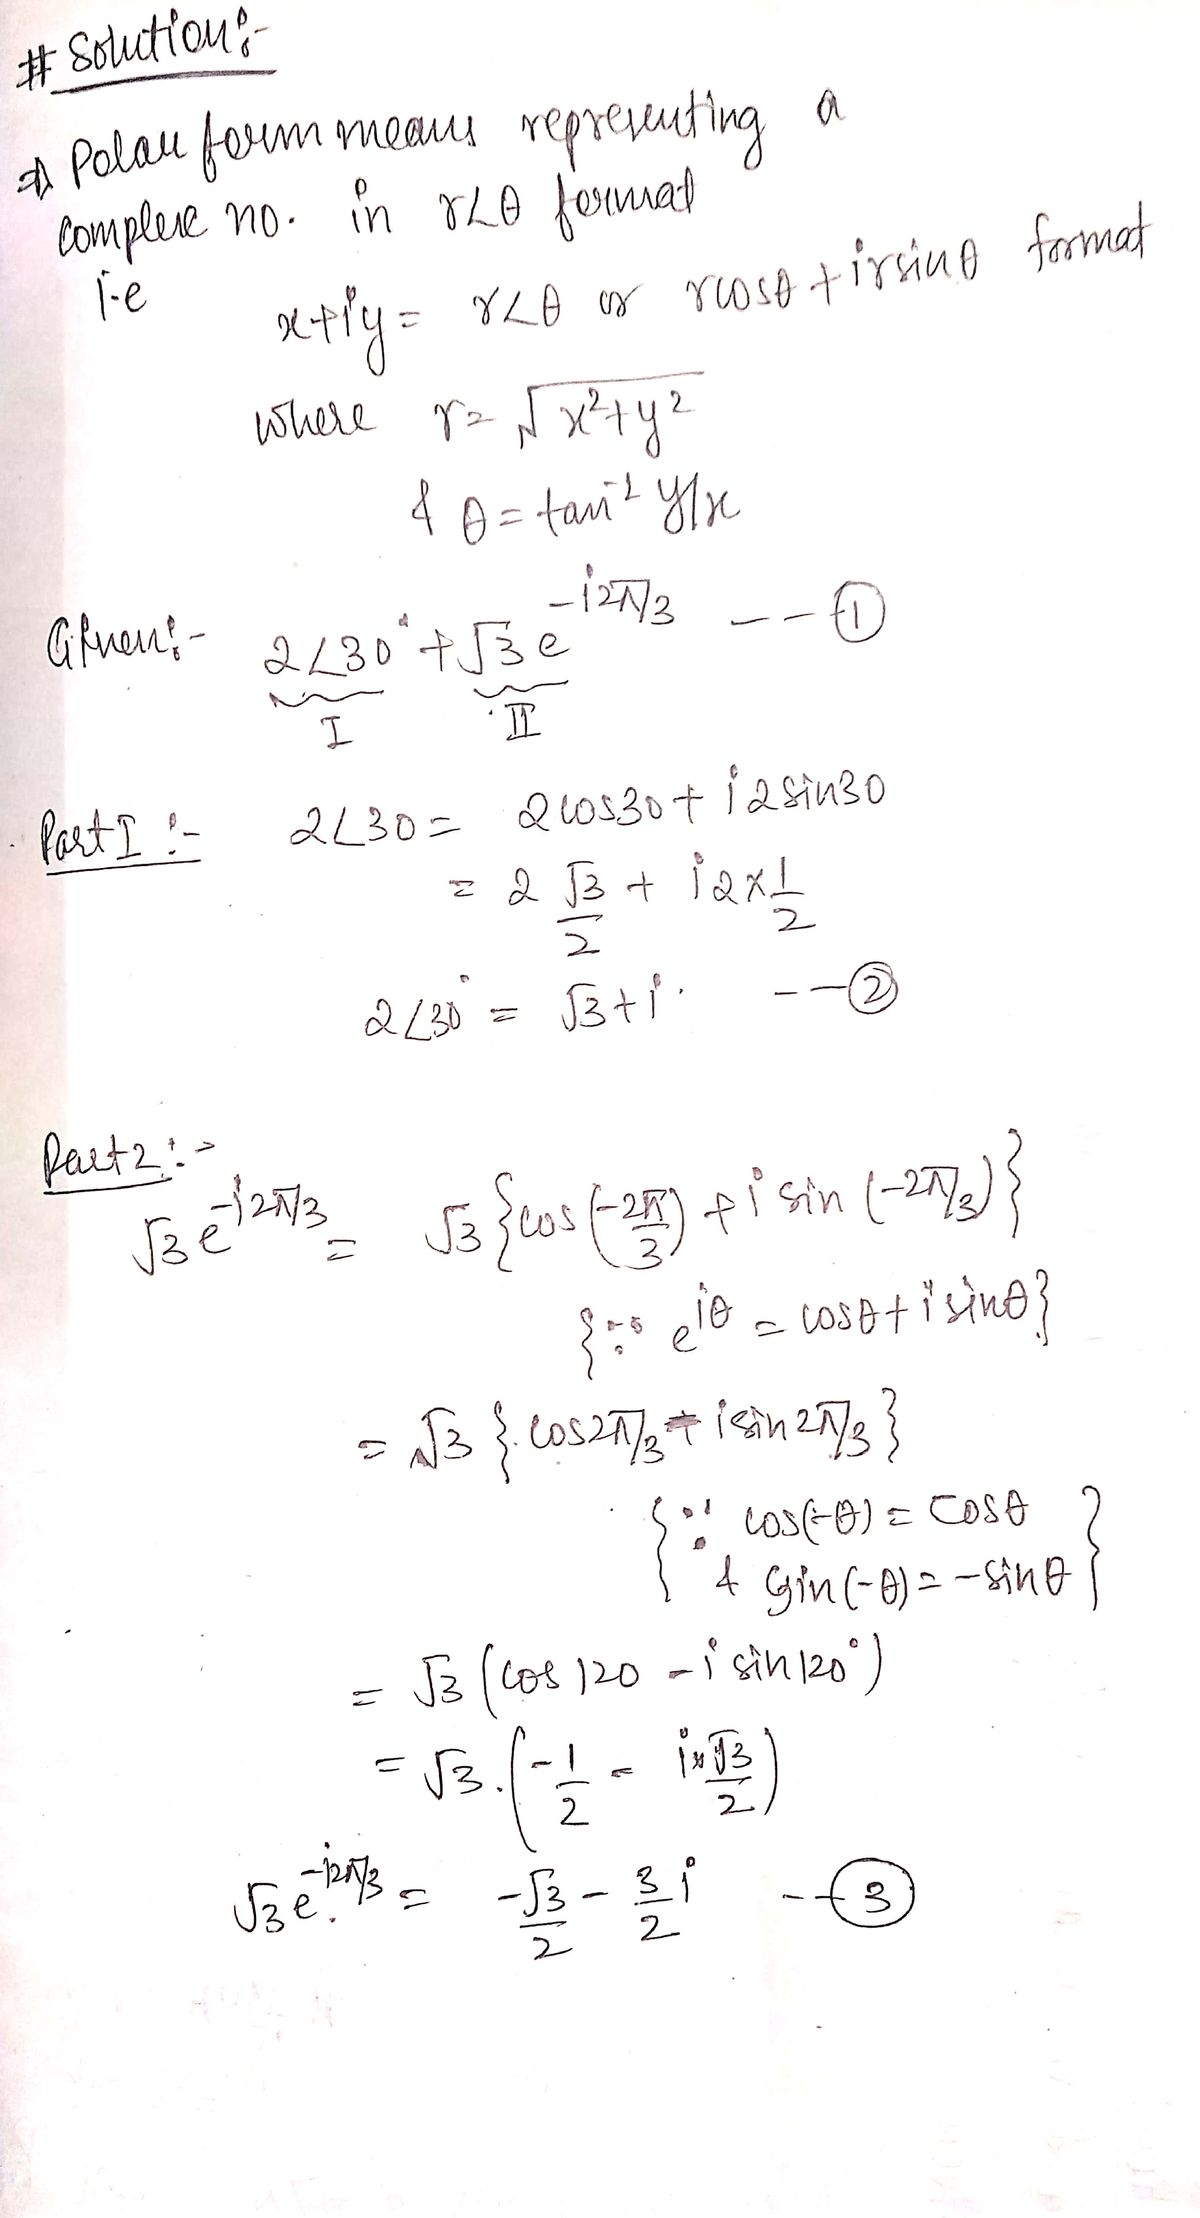 # Solution:-
⇒ Polar form means representing a
complex no. in r∠θ format
i.e
x+iy = r∠θ or rcosθ + irsinθ format
where r = √x²+y²
& θ = tan⁻¹ y/x
Given:- 2∠30° + √3 e^-i2π/3 --- ①
I II
Part I :- 2∠30 = 2cos30 + i2sin30
= 2 √3/2 + i2×1/2
2∠30° = √3+i. --- ②
Part 2:-
√3 e^-i2π/3 = √3 {cos(-2π/3) + i sin(-2π/3)}
{∵ e^iθ = cosθ + i sinθ}
= √3 {cos2π/3 - isin2π/3}
{∵ cos(-θ) = cosθ
& sin(-θ) = -sinθ}
= √3 (cos 120 - i sin 120°)
= √3.(-1/2 - i×√3/2)
√3 e^-i2π/3 = -√3/2 - 3/2 i --- ③